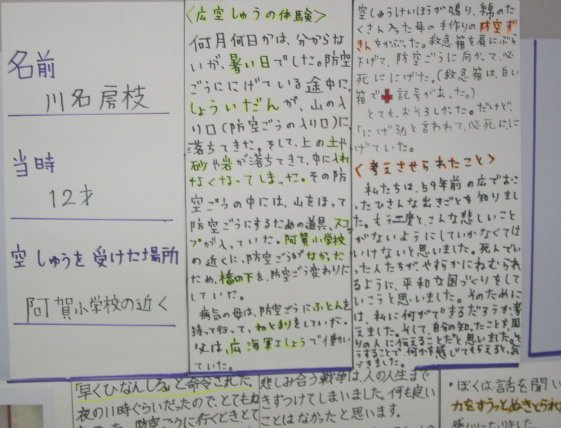 名前
川名房枝
当時
12才
空しゅうを受けた場所
阿賀小学校の近く
〈広空しゅうの体験〉
何月何日かは、分からな
いが、暑い日でした。防空
ごうににげている途中に、
しょういだんが、山の入
り口(防空ごうの入り口)に
落ちてきた。そして、上の土や
砂や岩が落ちてきて、中に入れ
なくなってしまった。その防
空ごうの中には、山をほって
防空ごうにするための道具、スコッ
プが入っていた。阿賀小学校
の近くに、防空ごうがなかった
ため、橋の下を、防空ごう変わりに
していた。
病気の母は、防空ごうにふとんを
持って行って、ねとまりをしていた。
父は、広海軍こしょうで働い
ていた。
空しゅうけいほうが鳴り、綿のた
くさん入った母の手作りの防空ず
きんをかぶった。救急箱を肩にぶら
下げて、防空ごうに向かって、必
死ににげた。(救急箱は、白い
箱で✚記号が出った。)
とても、おそろしかった。だけど、
「にげろ」と言われて、必死にに
げていた。
〈考えさせられたこと〉
私たちは、59年前の広でおこ
ったひさんな出きごとを知りまし
た。もう二度とこんな悲しいこと
がないようにしていかなくては
いけないと思いました。死んでい
った人たちが、やすらかにねむられ
るように、平和な国づくりをして
いこうと思いました。そのために
は、私に何ができるだろうか考
えました。そして、自分の知ったことを周
りの人に伝えることだと思いました。そ
うすることで、何かを感じてもらえると、
「早くひなんしろ」と命令された。
夜の11時ぐらいだったので、とてもね
防空ごうに行くときとて
悲しみ合う戦争は、人の人生まで
きずつけてしまいました。何も良い
ことはなかったと思います。
・ぼくは、話を聞い
力をすうっとぬきとられ